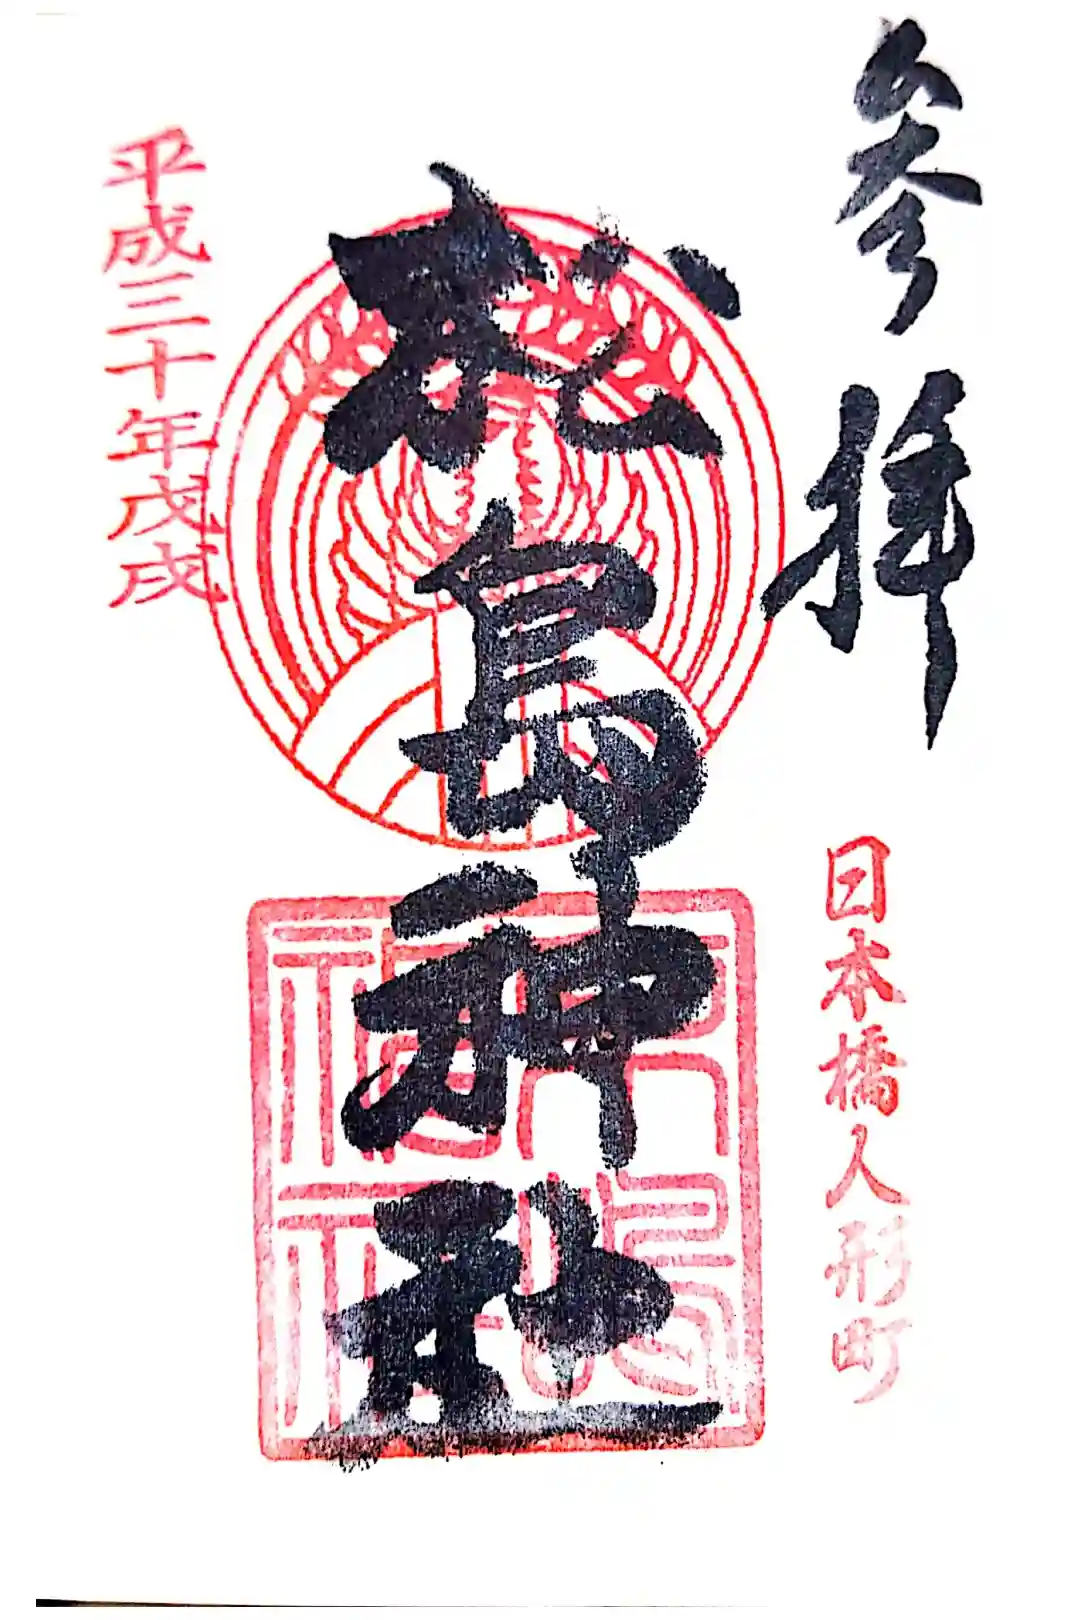 参拝
日本橋人形町
松島神社
平成三十年戊戌